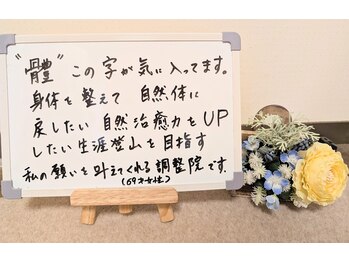 "體" この字が気に入ってます。
身体を整えて 自然体に
戻したい 自然治癒力をUP
したい 生涯登山を目指す
私の願いを叶えてくれる調整院です。
(69才女性)